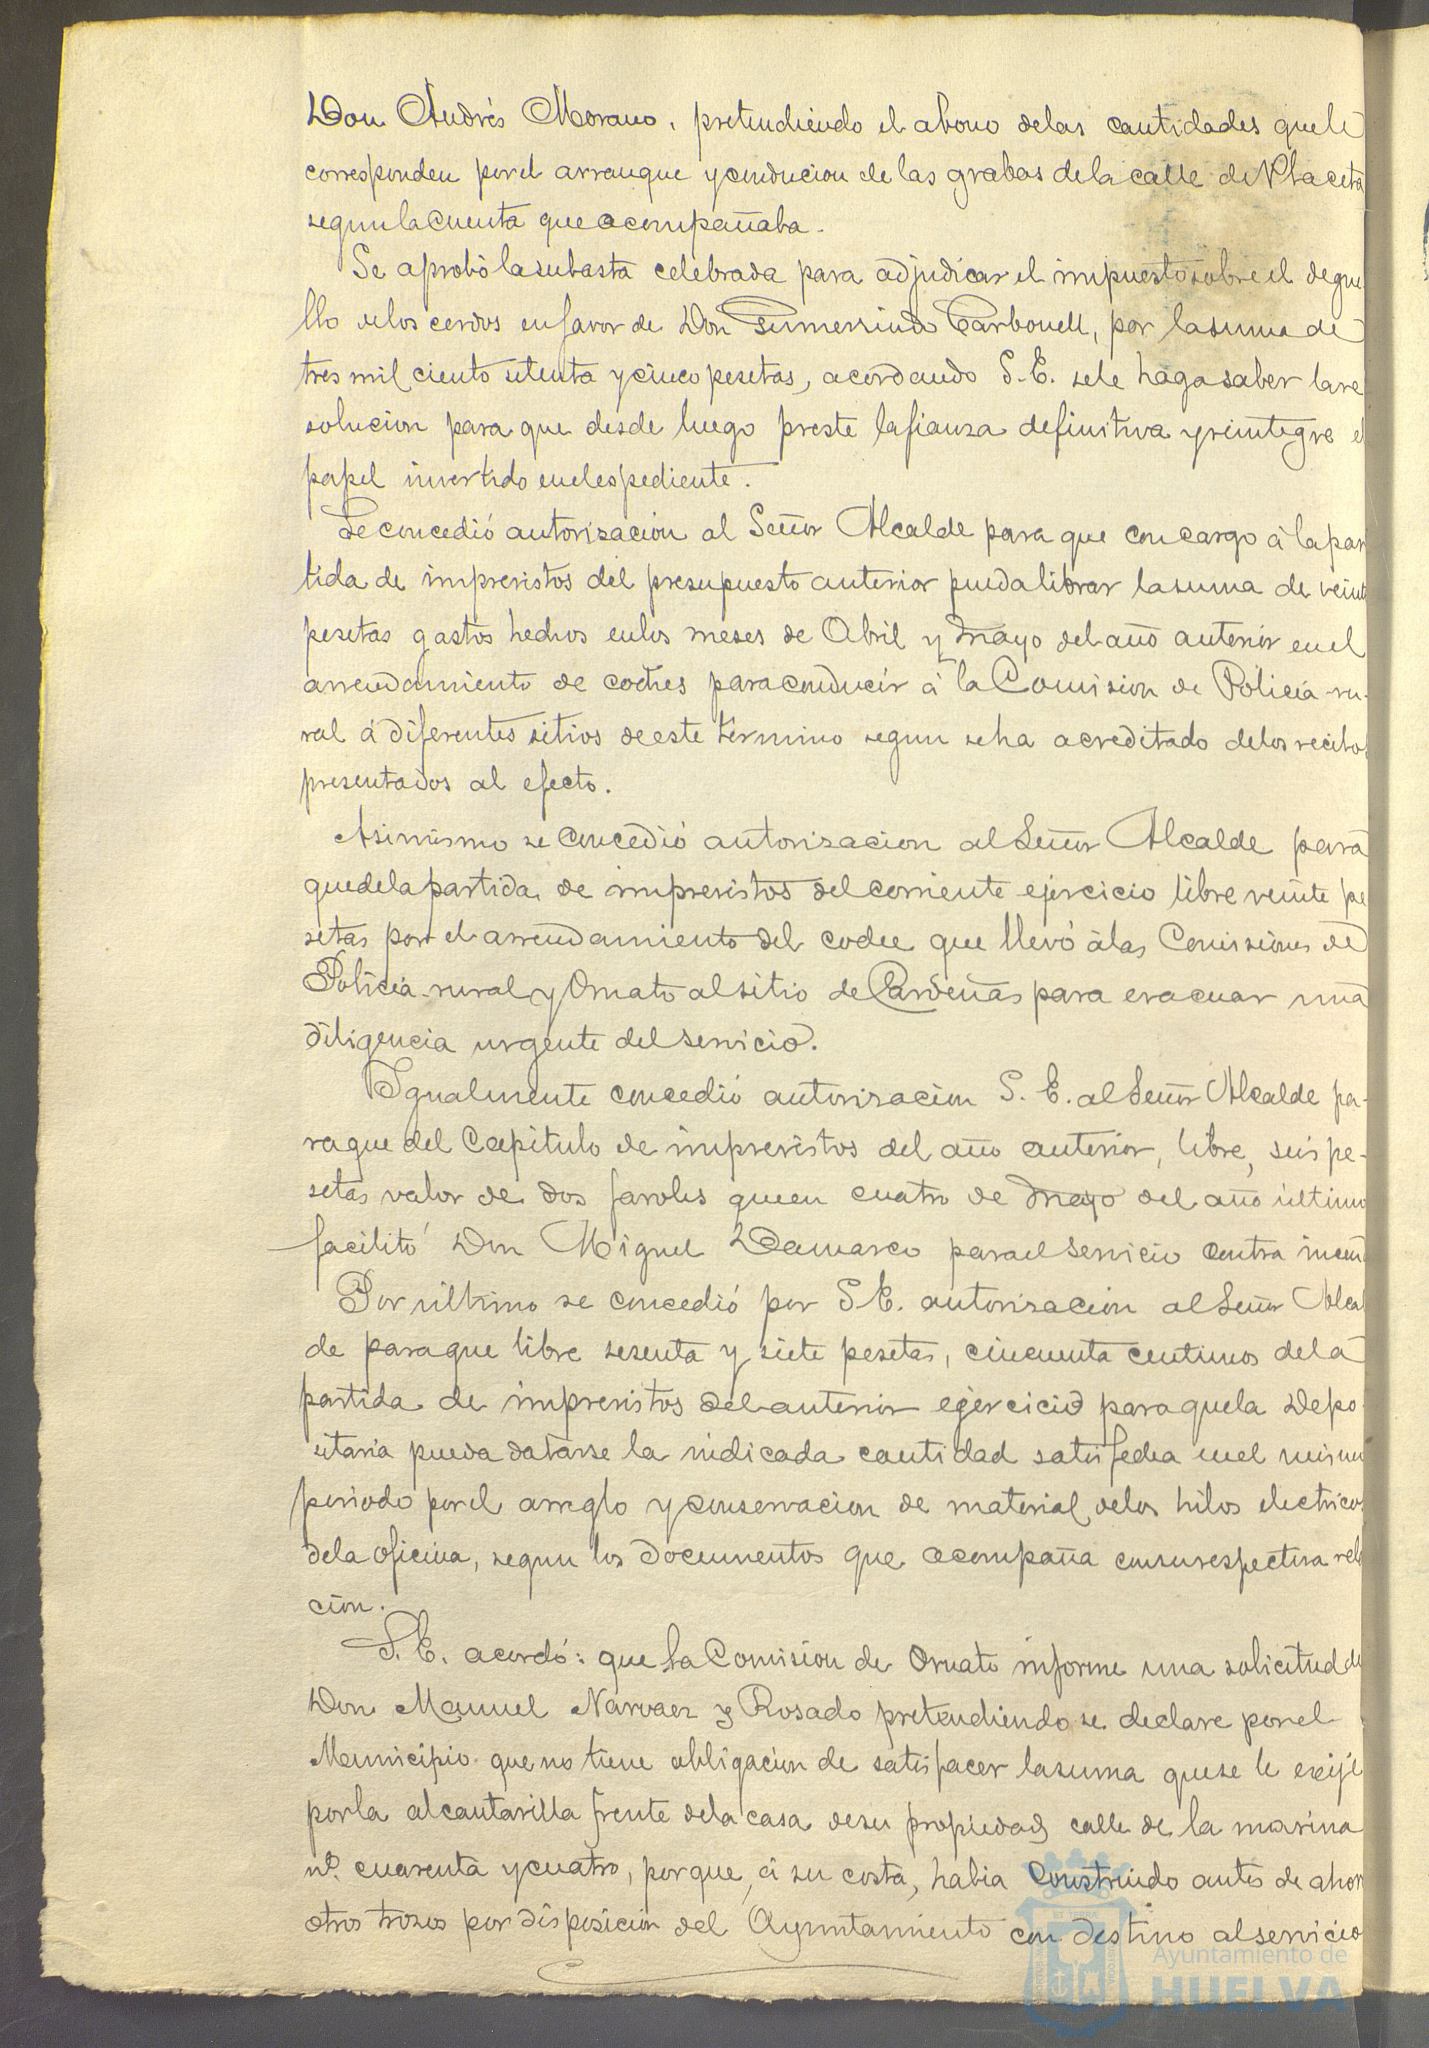 Don Andrés Morano, pretendiendo el abono delas cantidades quele
corresponden porel arranque y conducion de las grabas dela calle de Placeta
segun la cuenta que acompañaba.
Se aprobó la subasta celebrada para adjudicar el impuesto sobre el degue
llo delos cerdos en favor de Don Gumersindo Carbonell, por la suma de
tres mil ciento setenta y cinco pesetas, acordando S.E. sele haga saber la re
solucion para que desde luego preste la fianza definitiva y reintegre el
papel invertido enel espediente.
Se concedió autorizacion al Señor Alcalde para que con cargo á la par
tida de imprevistos del presupuesto anterior pueda librar la suma de veinte
pesetas gastos hechos enlos meses de Abril y Mayo del año anterior en el
arrendamiento de coches para conducir á la Comision de Policia ru-
ral á diferentes sitios de este término segun seha acreditado delos recibos
presentados al efecto.
Asimismo se concedió autorizacion al Señor Alcalde para
que dela partida de imprevistos del corriente ejercicio libre veinte pe
setas por el arrendamiento del coche que llevó álas Comisiones de
Policia rural y Ornato al sitio de Cardeñas para evacuar una
diligencia urgente del servicio.
Igualmente concedió autorizacion S. E. al Señor Alcalde pa-
raque del Capitulo de imprevistos del año anterior, libre, seis pe-
setas valor de dos faroles que en cuatro de Mayo del año último
facilitó Don Miguel Damarco para el servicio contra incen
Por último se concedió por S.E. autorizacion al Señor Alcal
de para que libre sesenta y siete pesetas, cincuenta centimos dela
partida de imprevistos del anterior ejercicio para quela Depo
sitaria pueda datarse la indicada cantidad satisfecha enel mismo
periodo porel arreglo y conservacion de material delos hilos electricos
dela oficina, segun los documentos que acompaña consu respectiva rela
cion.
S. E. acordó: que la Comision de Ornato informe una solicitud de
Don Manuel Narvaez y Rosado pretendiendo se declare porel
Municipio que no tiene obligacion de satisfacer la suma quese le exije
porla alcantarilla frente dela casa desu propiedad calle de la marina
nº. cuarenta y cuatro, porque, á su costa, habia construido antes de ahora
otros trozos por disposicion del Ayuntamiento con destino al servicio
Ayuntamiento de
HUELVA